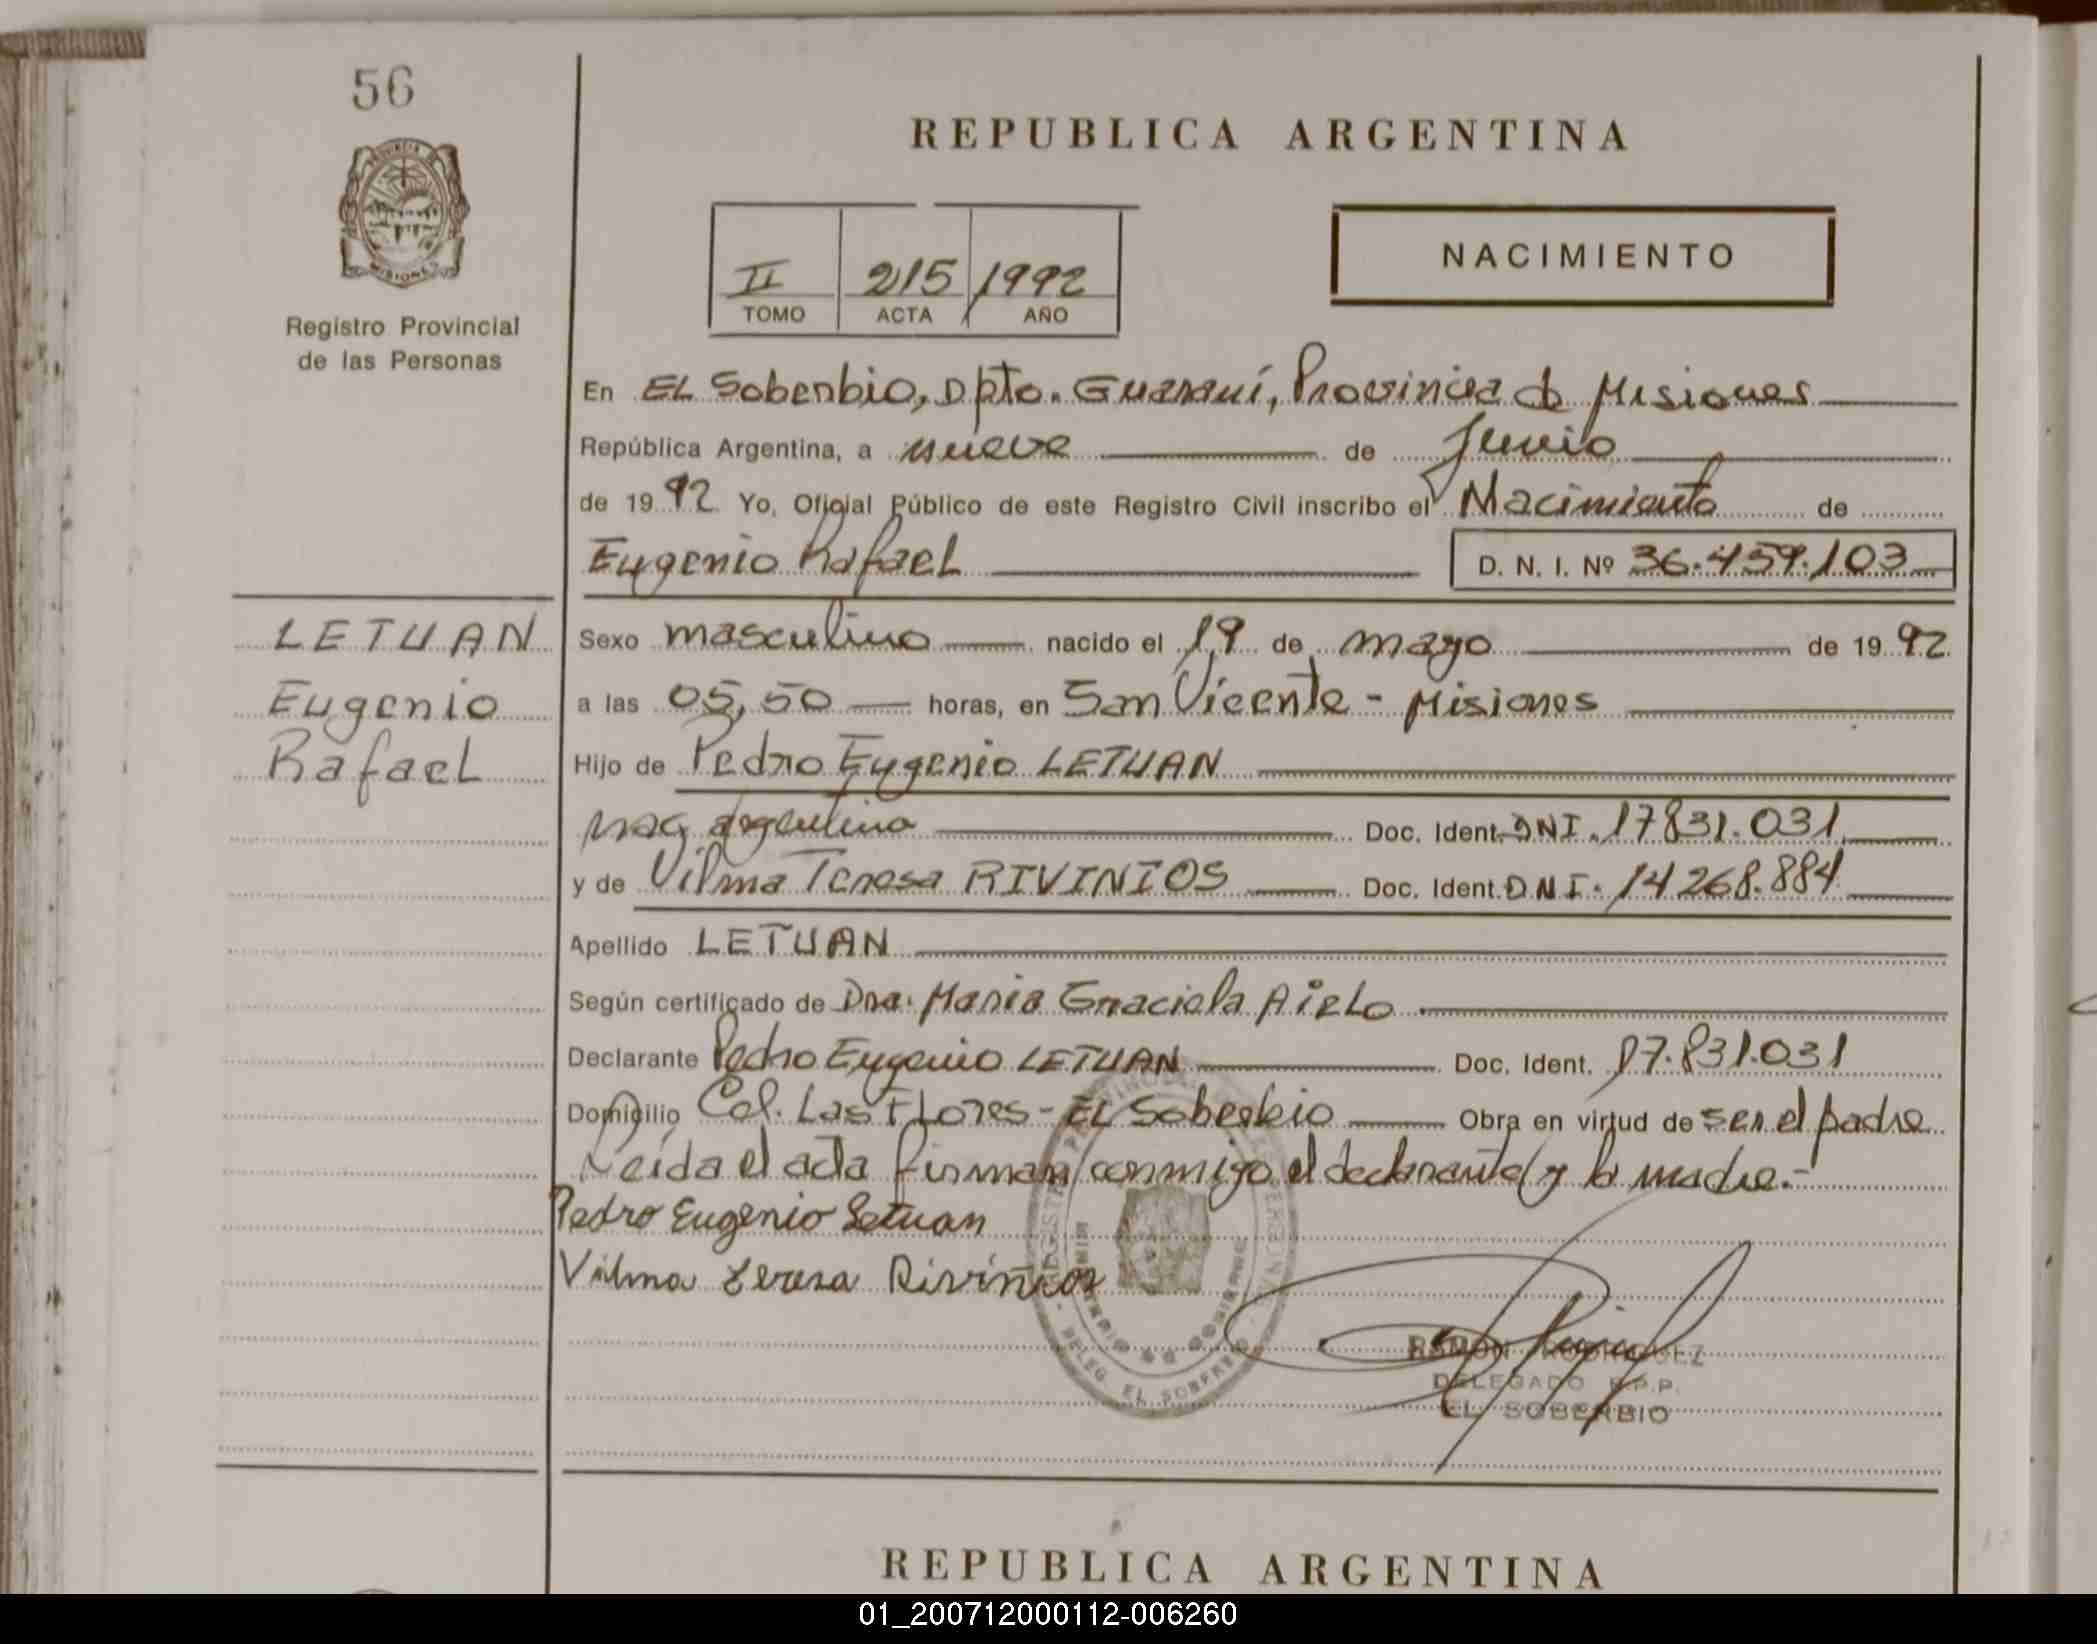 56
PROVINCIA DE
MISIONES
Registro Provincial
de las Personas
REPUBLICA ARGENTINA
II 215 1992
TOMO ACTA AÑO
NACIMIENTO
En EL Soberbio, Dpto. Guaraní, Provincia de Misiones
República Argentina, a nueve de Junio
de 1992 Yo, Oficial Público de este Registro Civil inscribo el Nacimiento de
Eugenio Rafael D. N. I. Nº 36.459.103
LETUAN
Eugenio
Rafael
Sexo masculino nacido el 19 de mayo de 1992
a las 05,50 horas, en San Vicente - Misiones
Hijo de Pedro Eugenio LETUAN
nac. argentino Doc. Ident. DNI. 17831.031
y de Vilma Teresa RIVINIOS Doc. Ident. DNI. 14268.884
Apellido LETUAN
Según certificado de Dra. Maria Graciela Aielo
Declarante Pedro Eugenio LETUAN Doc. Ident. 17.831.031
Domicilio Col. Las Flores - EL Soberbio Obra en virtud de ser el padre
Leída el acta firman conmigo el declarante y la madre.-
Pedro Eugenio Letuan
Vilma Teresa Rivinios
DELEG. EL SOBERBIO
RAMON RODRIGUEZ
DELEGADO R.P.P.
EL SOBERBIO
REPUBLICA ARGENTINA
01_200712000112-006260